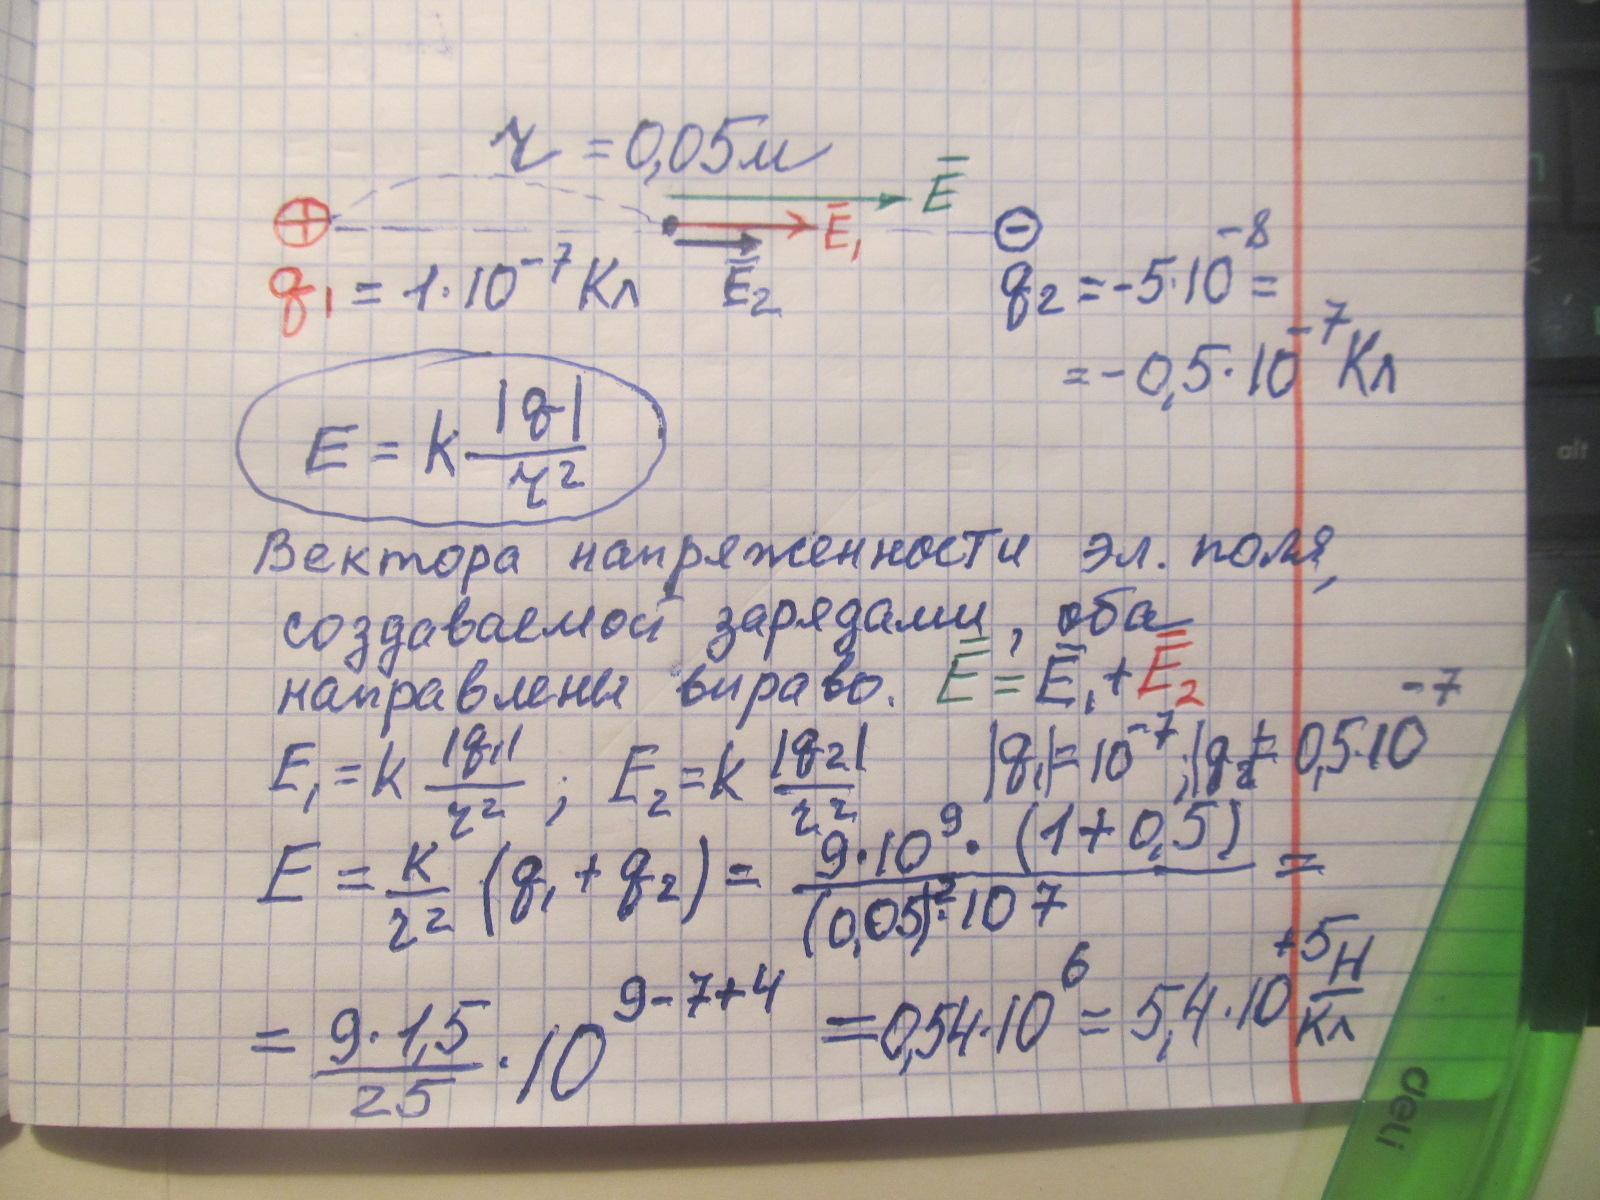 r = 0,05м
+ Ē
Ē₁ -
q₁ = 1·10⁻⁷ Кл Ē₂ q₂ = -5·10⁻⁸ =
= -0,5·10⁻⁷ Кл
E = k·|q|/r²
Вектора напряженности эл. поля,
создаваемой зарядами, оба
направлены вправо. Ē = Ē₁ + Ē₂
E₁ = k |q₁|/r² ; E₂ = k |q₂|/r² |q₁| = 10⁻⁷ ; |q₂| = 0,5·10⁻⁷
E = k/r² (q₁ + q₂) = 9·10⁹·(1+0,5)/(0,05)²·10⁷ =
= 9·1,5/25 · 10⁹⁻⁷⁺⁴ = 0,54·10⁶ = 5,4·10⁺⁵ Н/Кл
deli